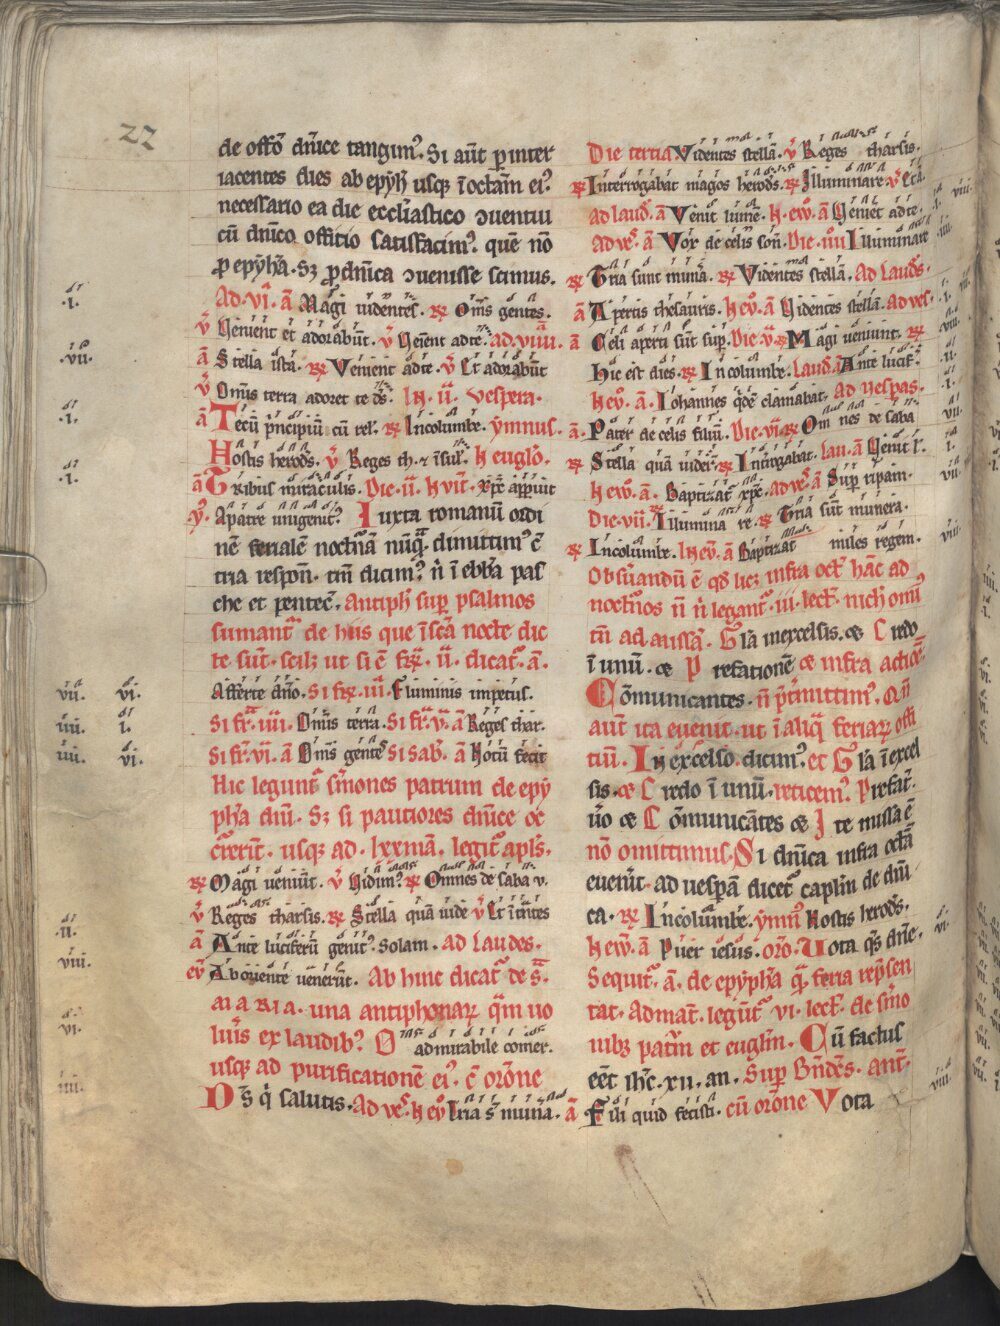 22
de offō dn̄ice tangim᷒. Si aūt ꝑ inter
iacentes dies ab epyh̄ usqꝫ ī octam̄ ei᷒
necessario ea die eccl̄iastico ↄuentui
cū dn̄ico offitio satisfacim᷒. quē nō
ꝓ epyh̄a. Sꝫ ꝓ dn̄ica ↄuenisse scimus.
Ad. vi. ā Magi uidentes. ℞ Om̄s gentes.
℣ Uenient et adorabūt. ℣ Ueient adte. ad. viiii. ā
ā Stella ista. ℞ Venient adte ℣ Et adorabūt
℣ Om̄is terra adoret te dś. In. ii. vespera.
ā Tecū pͥncipiū cū rel. ℞ Incolumbe. ymnus.
Hostis herodś. ℣ Reges th. ⁊ īsul. h euglō.
ā Tribus miraculis. Die. ii. h vit. xpē apꝑuit
℣. Apatre unigenit᷒ Iuxta romanū ordi
nē ferialē noct̄nā nūq̄. dimittim᷒ ē
tria respon. tm̄ dicim᷒ n̄ ī ebba pas
che et pentec̄. Antiph̄ sup̄ psalmos
sumant᷑ de hiis que ī sc̄a nocte dic
te sūt. scilꝫ ut si ē fr̄. ii. dicat᷑. ā.
Afferte dn̄o. Si fr̄. iii. Fluminis impetus.
vii. vi.
Si fr̄. iiii. Omīs terra. Si fr̄. v. ā Reges thar.
iiii. i.
Si fr̄. vi. ā Om̄s gentes Si sab. ā Notū fecit
iiii. vi.
Hic legunt᷑ s̄mones patrum de epy
ph̄a dnī. Sꝫ si pautiores dn̄ice oc
c̄rerīt. usqꝫ ad. lxxmā. legit᷑ apl̄s.
℞ Magi ueniūt. ℣ Uidim᷒ ℞ Omnes de saba v.
℣ Reges tharsis. ℞ Stella quā uide ℣ Et ītntes
ā Ante luciferū genit᷒. Solam. ad Laudes.
ii.
ev̄ Ab oriente uenerūt. Ab hinc dicat᷑ de s̄.
viii.
MARIA. una antiphonaꝝ q̄m uo
lu̅is ex laudib᷒ O admirabile comer.
vi.
usqꝫ ad purificationē ei᷒. c̄ orōne
Dś qͥ salutis. Ad ves̄. h ev̄ Tria s̄ muna. ā
iiii.
Die tertia Videntes stellā. ℣ Reges tharsis.
℞ Interrogabat magos herodś. ℞ Illuminare. ℣ Et ā.
ad laud. ā Venit lumē. h. ew̄. ā Ueniet adte.
ad ves̄. ā Vox de celis son̄. Die. iiii Illuminare
℞ Tria sunt munā. ℞ Videntes stellā. Ad Laudś.
ā Apertis thesauris. h ev̄. ā Uidentes stellā. ad ves.
Celi aperti sūt sup̄. Die. v. ℞ Magi ueniunt. ℞
Hic est dies. ℞ Incolumbe. Laud. ā Ante lucif.
h ev̄. ā. Iohannes qͥdē clamabat. Ad uespas.
ā. Pater de celis filiū. Die. vi. ℞ Om nes de saba
℞ Stella quā uider̄. ℞ Introgabat. lau. ā Uenit l.
h ew̄. ā. Baptizat᷑ xpē. ad ves̄ ā Sup̄ ripam.
Die. vii. Illumina re. ℞ Tria sūt munera.
℞ Incolumbe. h ev̄. ā Baptizat miles regem.
Obsuandū ē qd̄ licꝫ infra oct̄ hāc ad
noct̄nos n̄ n̄ legant᷑. iii. lect̄. nich̄ omī᷒
tn̄ ad missā. Gl̄a inexcelsis. ⁊c Credo
ī unū. ⁊c Prefationē ⁊c infra actiōē.
Cōmunicantes. n̄ p̄tmittim᷒. Qn̄
aūt ita euenit. ut ī aliq̄ feriaꝝ offi
tiū. In excelso. dicim᷒. et Gl̄a ī excel
sis. ⁊c Credo ī unū. reticem᷒. Prefat̄.
uō ⁊c Cōmunicātes ⁊c Ite missa ē
nō omittimus. Si dn̄ica infra octā
euenīt. ad uesꝑā dicet᷑ caplm̄ de dnī
ca. ℞ Incolumbe. ymn᷒ Hostis herodś.
h ew̄. ā Puer iesus. orō. Vota qś dn̄e.
Sequit᷑. ā. de epyph̄a q̄. feria rep̄sen
tat. Ad mat̄. legūt᷑ vi. lect̄. de s̄mo
nibꝫ patm̄ et euglm̄. Cū factus
eēt ihc̄. xii. an. Sup̄ Bn̄dcs̄. ant̄.
Fili quid fecisti. cū orōne Vota